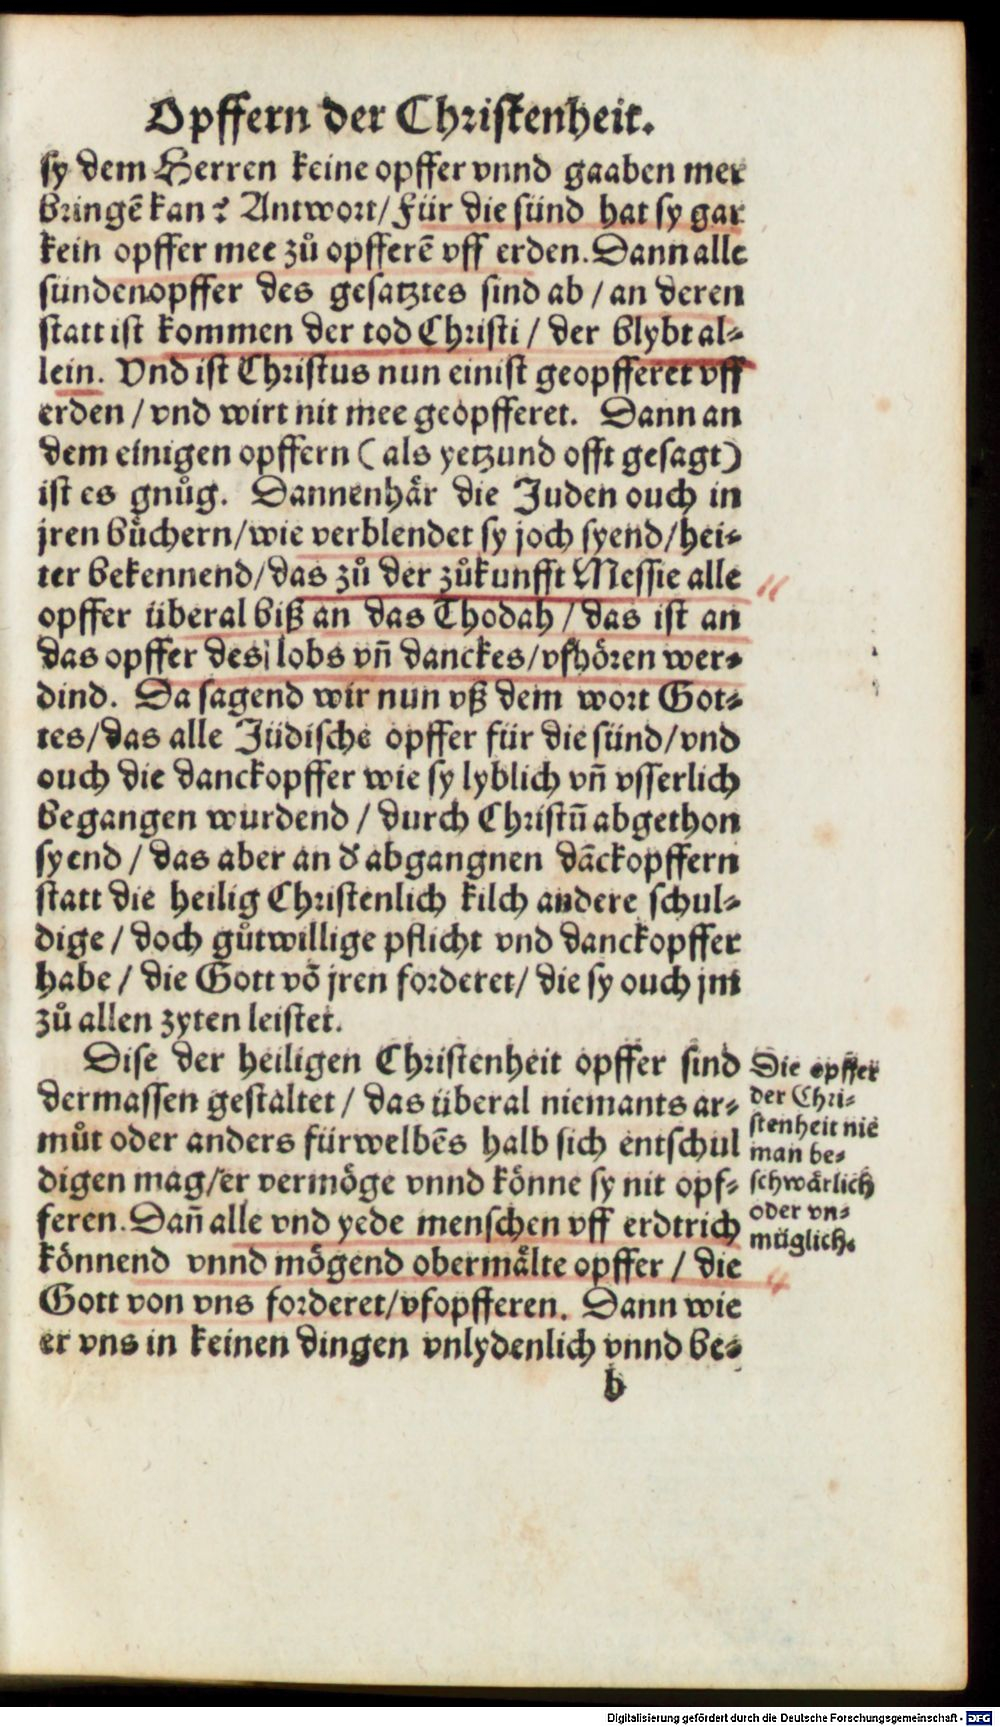 Opffern der Christenheit.
sy dem Herren keine opffer vnnd gaaben mer
bringē kan? Antwort/ Für die sünd hat sy gar
kein opffer mee zů opfferē vff erden. Dann alle
sündenopffer des gesatztes sind ab / an deren
statt ist kommen der tod Christi / der blybt al-
lein. Vnd ist Christus nun einist geopfferet vff
erden / vnd wirt nit mee geopfferet. Dann an
dem einigen opffern ( als yetzund offt gesagt)
ist es gnůg. Dannenhår die Juden ouch in
jren bůchern/wie verblendet sy joch syend/hei-
ter bekennend/das zů der zůkunfft Messie alle
opffer überal biß an das Thodah / das ist an
das opffer des lobs vn̄ danckes/vfhören wer-
dind. Da sagend wir nun vß dem wort Got-
tes/das alle Jüdische opffer für die sünd/vnd
ouch die danckopffer wie sy lyblich vn̄ vsserlich
begangen wurdend / durch Christū abgethon
syend / das aber an d' abgangnen dāckopffern
statt die heilig Christenlich kilch andere schul-
dige / doch gůtwillige pflicht vnd danckopffer
habe / die Gott vō jren forderet/ die sy ouch jm
zů allen zyten leistet.
Dise der heiligen Christenheit opffer sind
dermassen gestaltet / das überal niemants ar-
můt oder anders fürwelbēs halb sich entschul
digen mag/er vermöge vnnd könne sy nit opf-
feren. Dan̄ alle vnd yede menschen vff erdtrich
könnend vnnd mögend obermålte opffer / die
Gott von vns forderet/vfopfferen. Dann wie
er vns in keinen dingen vnlydenlich vnnd be-
Die opffer
der Chri-
stenheit nie
man be-
schwårlich
oder vn-
müglich.
b
Digitalisierung gefördert durch die Deutsche Forschungsgemeinschaft - DFG